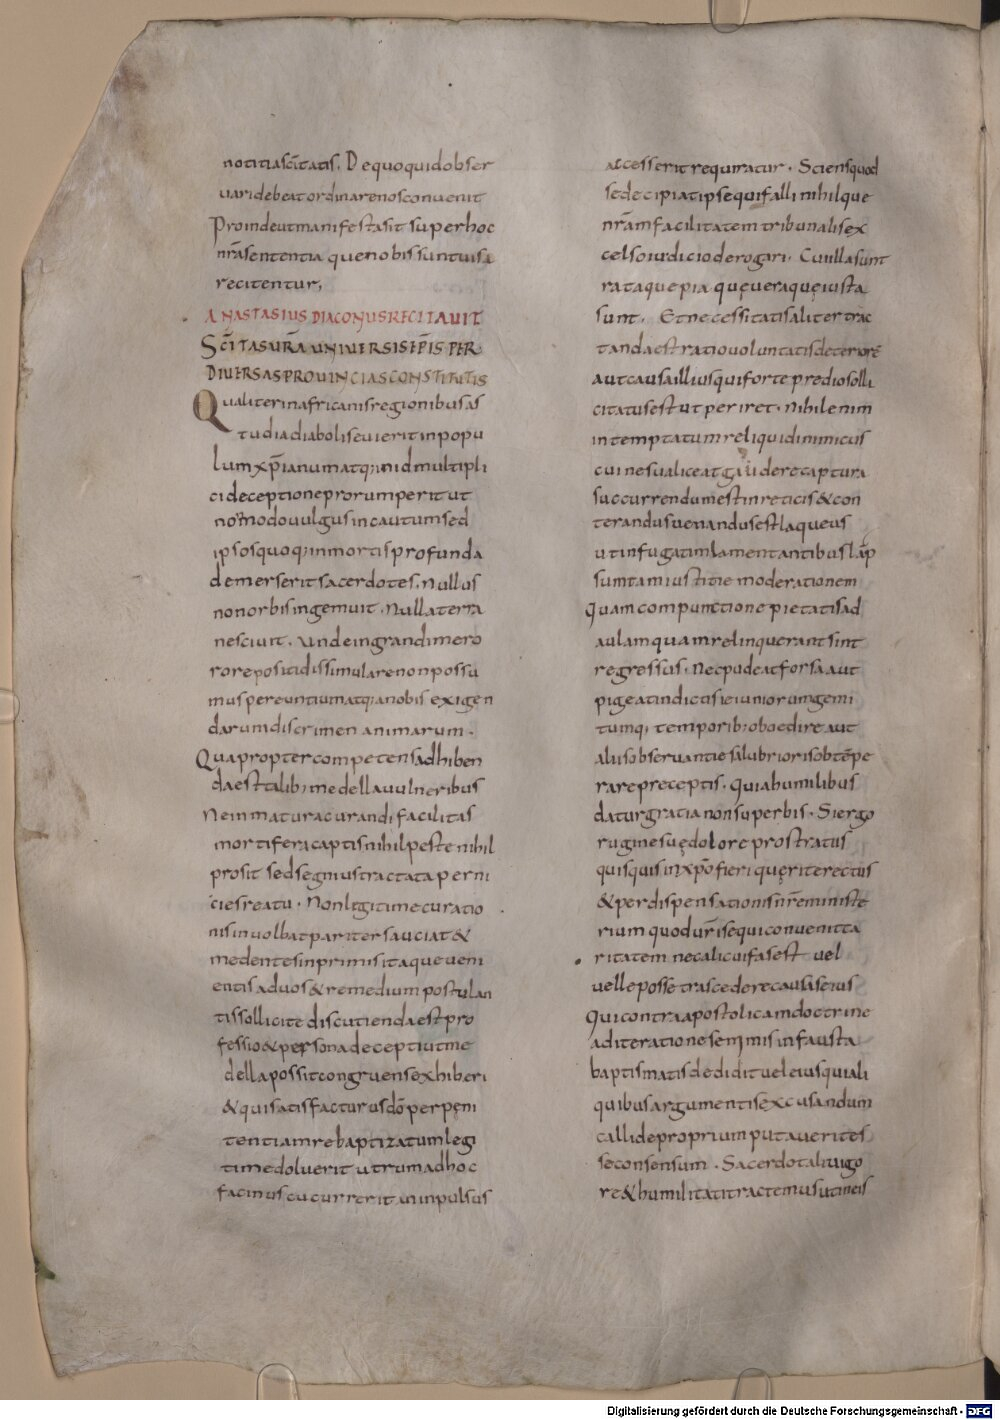 notitia sc̄itatis. De quo quid obser
uari debeat ordinare nos conuenit
Proinde ut manifesta sit super hoc
nr̄a sententia que nobis sunt uisa
recitentur;
ANASTASIUS DIACONUS RECITAUIT
Sc̄ITAS UR̄A UNIUERSIS EP̄IS PER
DIUERSAS PROUINCIAS CONSTITUTIS
Qualiter in africanis regionibus as
tu diaboli seuierit in popu
lum xp̄ianum atq; in id multipli
ci deceptione prorumperit ut
non modo uulgus incautum sed
ipsos quoq; in mortis profunda
demerserit sacerdotes. Nullus
non orbis ingemuit. Nulla terra
nesciuit. Unde in grandi mero
rore positi dissimulare non possu
mus pereuntium atq; a nobis exigen
darum discrimen animarum.
Quapropter competens adhiben
da est talib; medella uulneribus
Ne inmatura curandi facilitas
mortifera captis nihil peste nihil
prosit sed segnius tractata perni
cies reatu. Non legitime curatio
nis inuolbat pariter sauciat &
medentes inprimis itaque ueni
entis ad uos & remedium postulan
tis sollicite discutienda est pro
fessio & persona decepti ut me
della possit congruens exhiberi
& qui satisfacturus dō per pęni
tentiam rebaptizatum legi
time doluerit utrum ad hoc
facinus cucurrerit an inpulsus
accesserit requiratur. Sciens quod
se decipiat ipse qui falli nihilque
nr̄am facilitatem tribunalis ex
celso iudicio derogari. Cui illa sunt
rata que pia quę uera quę iusta
sunt. Et necessitatis aliter trac
tanda est ratio uoluntatis deteriorē
aut causa illius qui forte predio solli
citatus est ut periret. Nihil enim
intemptatum reliquid inimicus
cui ne sua liceat gaudere captura
succurrendum est in reticis & con
terandus uenandus est laqueus
ut in fugatim lamentantibus lāp
sum tam iustitie moderationem
quam compunctione pietatis ad
aulam quam relinquerant sint
regressus. Nec pudeat forsa aut
pigeat indictis ieiuniorum gemi
tumq; temporib; oboedire aut
aliis obseruantie salubrioris obtēpe
rare preceptis. Quia humilibus
datur gratia non superbis. Si ergo
rugine suę dolore prostratus
quisquis in xp̄o fieri quęrit erectus
& per dispensationis nr̄e ministe
rium quod ur̄is equi conuenit ca
ritatem nec alicui fas est uel
uelle posse trascedere causas eius
qui contra apostolicam doctrine
ad iteratione semmis infausta
baptismatis dedidit uel eius quiali
quibus argumentis excusandum
callide proprium putauerit es
se consensum. Sacerdotali uigo
re & humilitati tractemus ut in eis
Digitalisierung gefördert durch die Deutsche Forschungsgemeinschaft - DFG